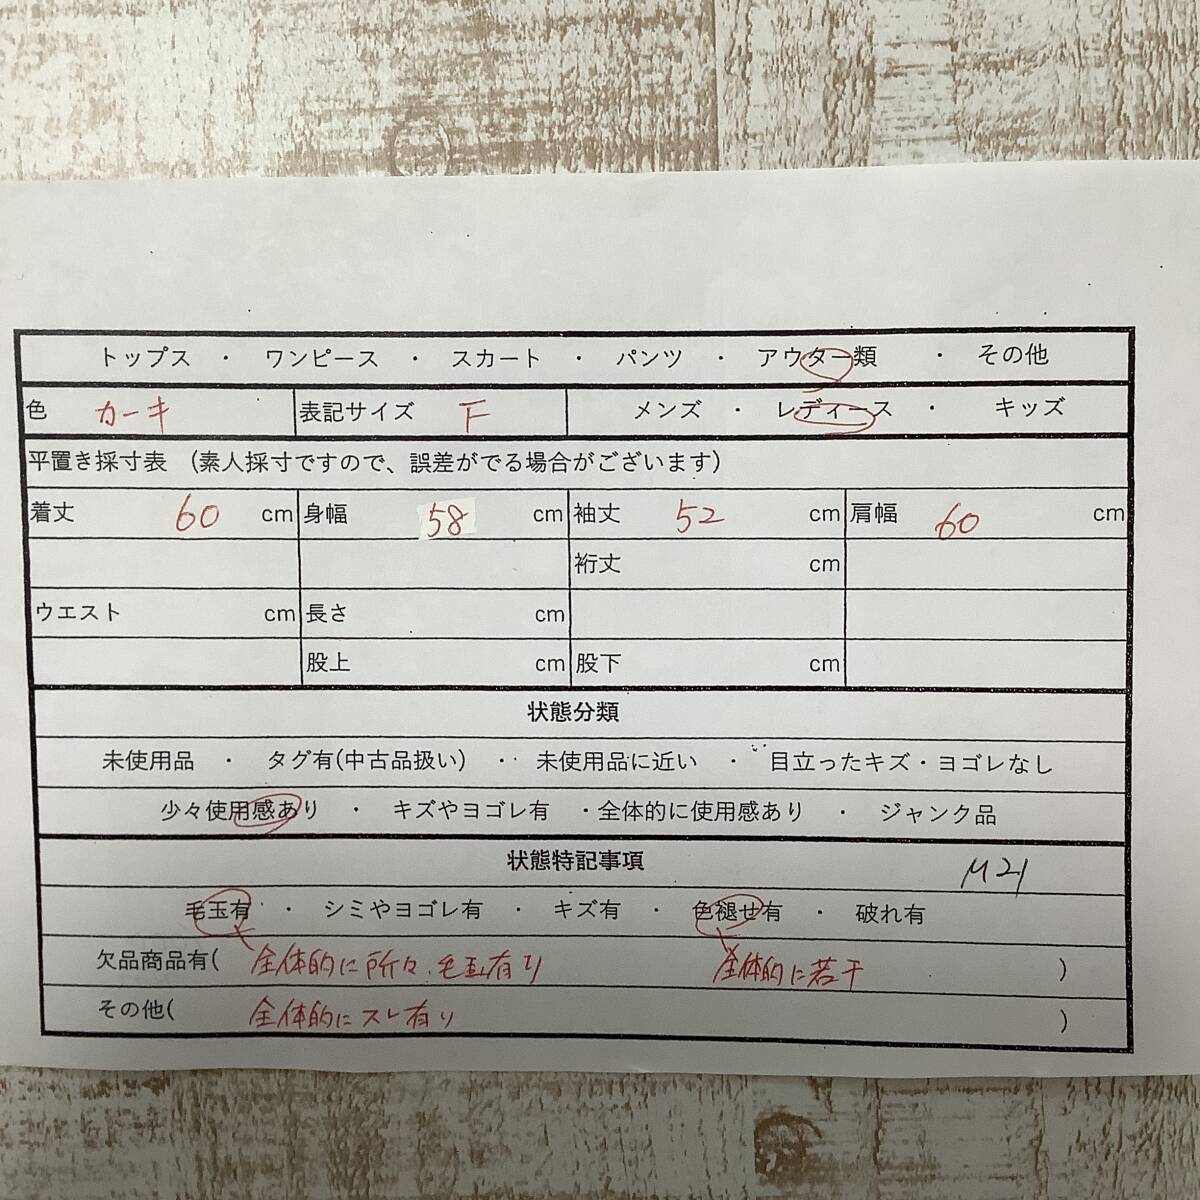 トップス ・ ワンピース ・ スカート ・ パンツ ・ アウター類 ・ その他
色 カーキ 表記サイズ F メンズ ・ レディース ・ キッズ
平置き採寸表 (素人採寸ですので、誤差がでる場合がございます)
着丈 60 cm 身幅 58 cm 袖丈 52 cm 肩幅 60 cm
裄丈 cm
ウエスト cm 長さ cm
股上 cm 股下 cm
状態分類
未使用品 ・ タグ有(中古品扱い) ・ 未使用品に近い ・ 目立ったキズ・ヨゴレなし
少々使用感あり ・ キズやヨゴレ有 ・全体的に使用感あり ・ ジャンク品
状態特記事項 M21
毛玉有 ・ シミやヨゴレ有 ・ キズ有 ・ 色褪せ有 ・ 破れ有
欠品商品有( 全体的に所々、毛玉有り 全体的に若干 )
その他( 全体的にスレ有り )